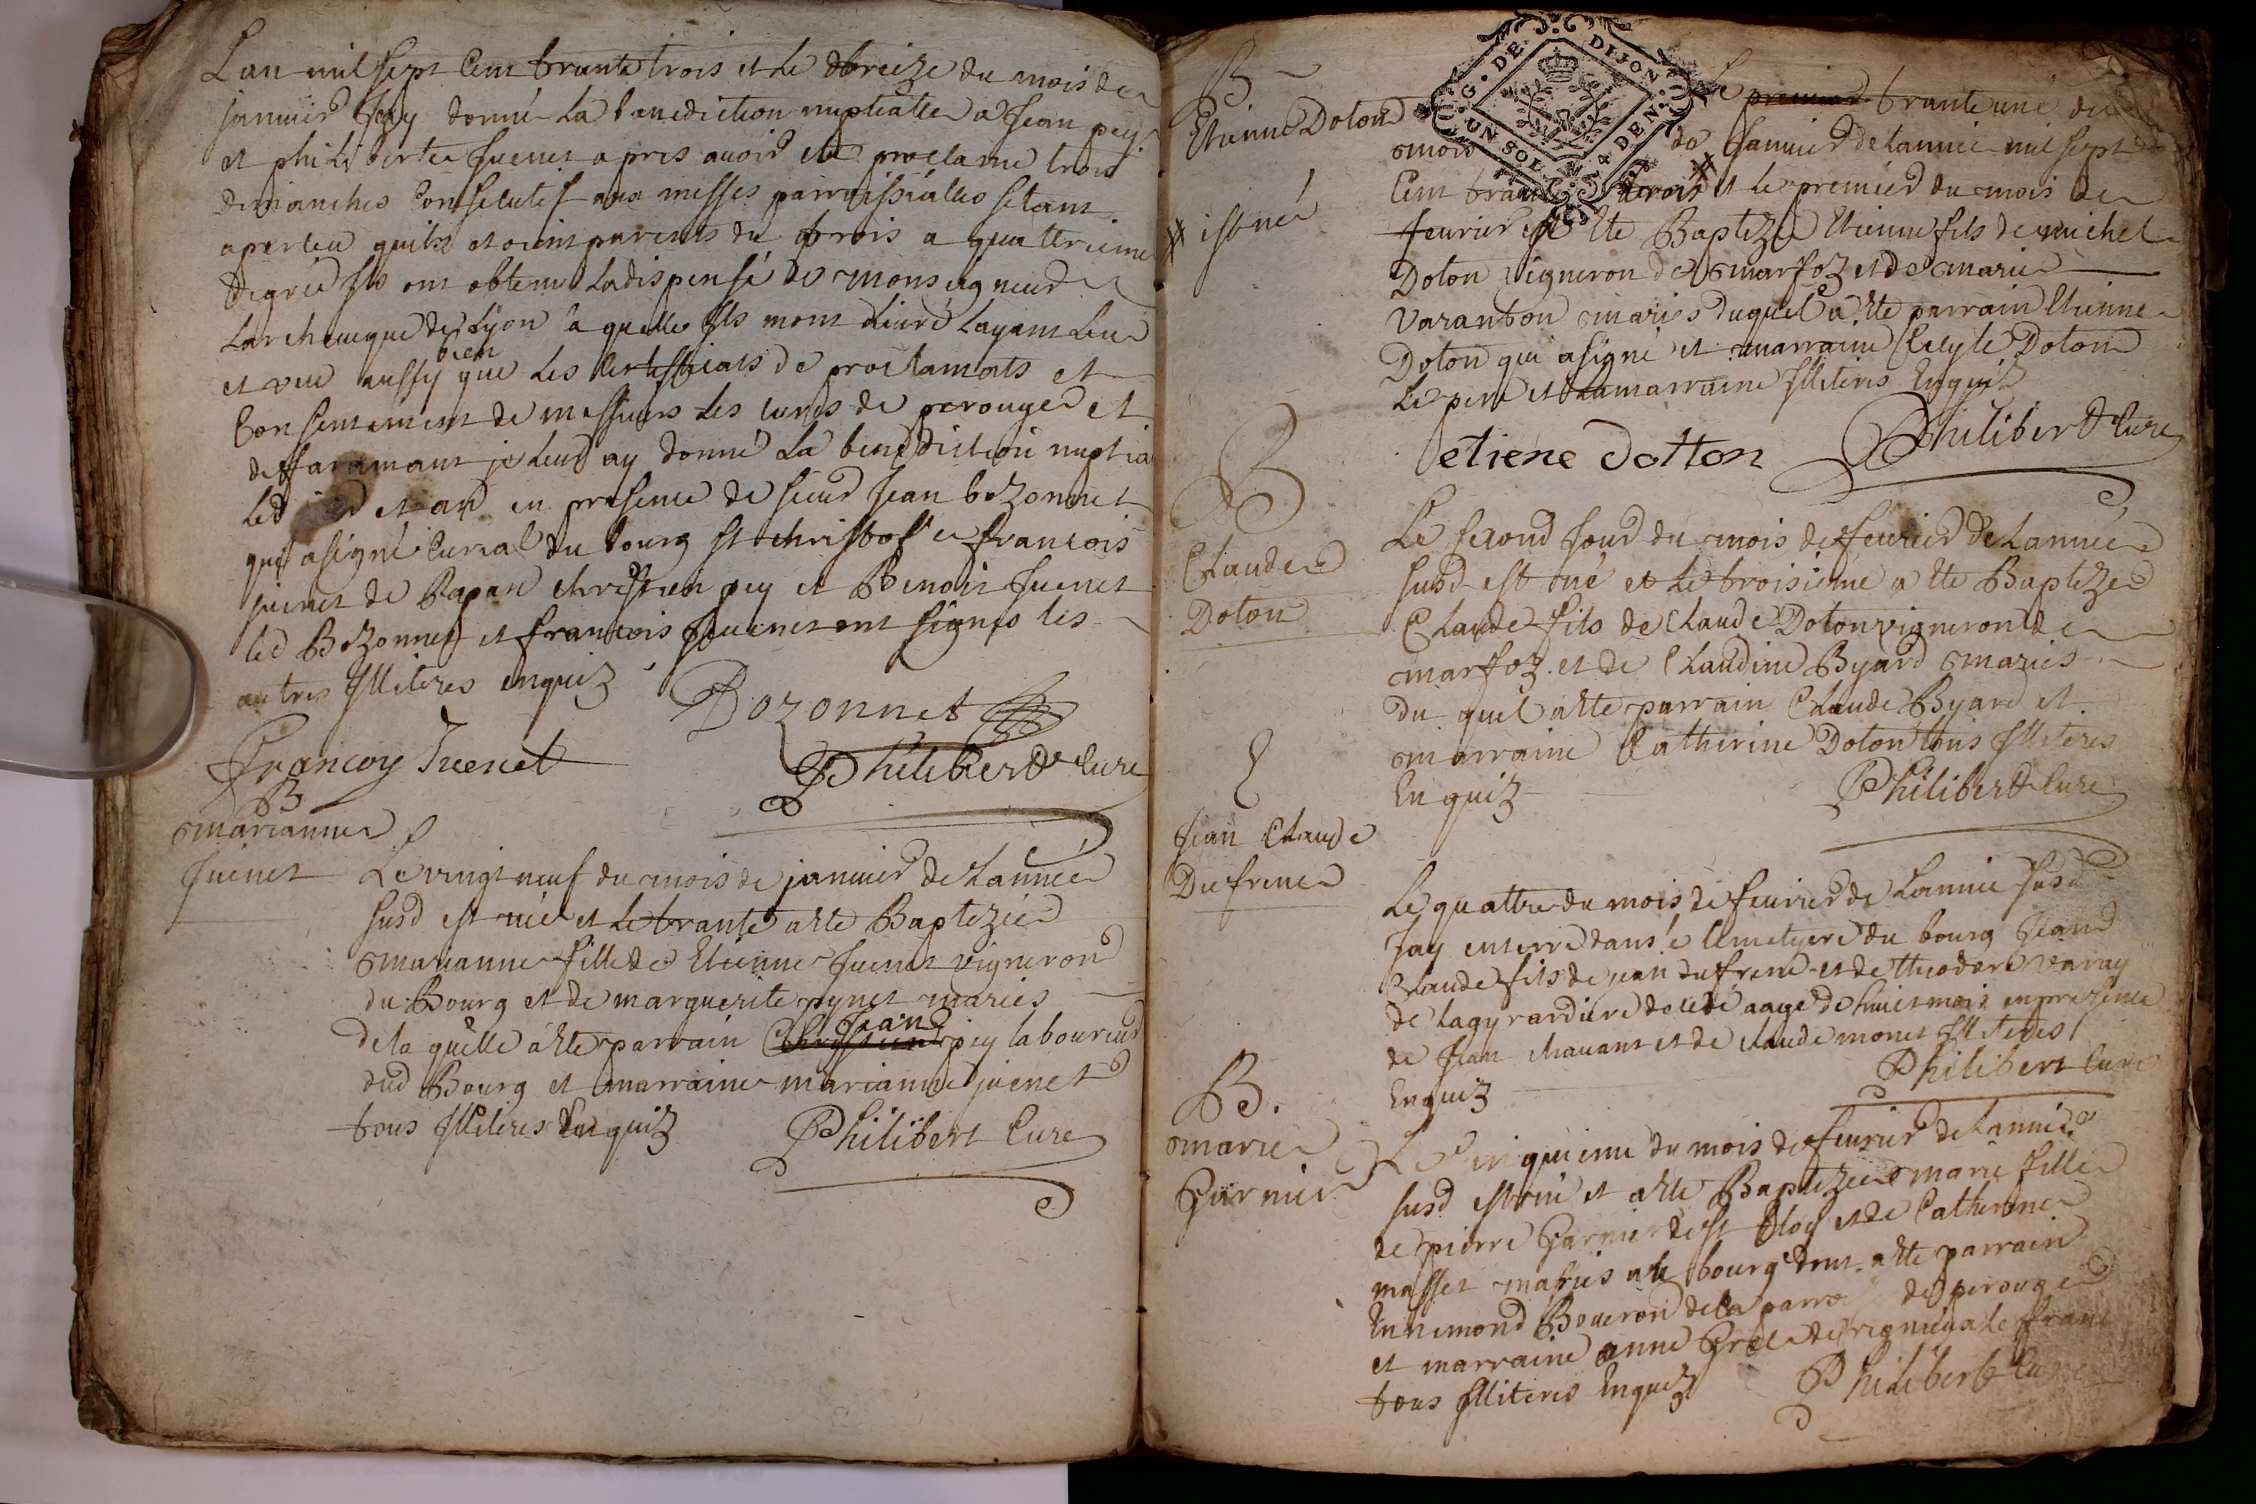 Lan mil sept Cent trente trois et le treize du mois de
janvier Jay donné La benediction nuptialle a Jean pey
et philiberte Juenet apres avoir eté proclamé trois
dimanches Consecutif aux messes parroissialles setant
aperceu quils etoient parents du trois a quattrieme
degrée Ils ont obtenu La dispense de monseigneur
Larcheveque de Lyon laquelle Ils mont Livré Layant Leu
et veu aussy bien que Les Certificats de proclamats et
Consentement de messieurs Les curés de perouge et
de faramant je Leur ay donné La benediction nuptia
Led et an en presence de sieur Jean bozonnet
qui a signé Curial du bourg st christofle francois
juenet de Rapan christien pey et Benoit Juenet
led Bozonnet et francois Juenet ont signés les
autres Illiteres enquiz
Bozonnet
francoy Juenet
Philibert Cure
B
marianne
Juenet
Le vingt neuf du mois de janvier de Lannée
susd est née et Le trante a ete Baptizée
marianne fille de Etienne Juenet vigneron
du Bourg et de marguerite pynet mariés
de la quelle a ete parrain Jean pey laboureur
dud Bourg et marraine marianne juenet
tous Illiteres Enquiz
Philibert Cure
G. DE DIJON
UN SOL 4 DEN.
B
Etienne Doton
Le premier trante une du
mois de Janvier de Lannée mil sept
Cent trante trois # et le premier du mois de
# est né
fevrier a Ete Baptizé Etienne fils de michel
Doton vigneron de marfoz et de marie
Varanbon mariés duquel a ete parrain Etienne
Doton qui a signé et marraine Cecyle Doton
Le pere et La marraine Illiteres Enquiz
etiene dotton
Philibert Cure
B
Claude
Doton
Le second Jour du mois de fevrier de Lannée
susd est né et Le troisieme a ete Baptizé
Claude fils de Claude Doton vigneron de
marfoz et de Claudine Byard mariés
du quel a ete parrain Claude Byard et
marraine Catherine Doton tous Illiteres
Enquiz
Philibert Cure
Jean Claude
Dufrene
Le quattre du mois de fevrier de Lannée susd
Jay enterré dans le Cimetyere du bourg Jean
Claude fils de jean dufrene et de theodore varay
de Lagyrardiere decedé aagé de huit mois en presence
de Jean chavant et de claude monet Illiteres
Enquiz
Philibert Cure
B.
marie
Garnier
Le Cinquieme du mois de fevrier de Lannée
susd est née et a ete Baptizée marie fille
de pierre Garnier de st Eloy et de Catherine
masset mariés a le bourg dont a ete parrain
Ennemond Boveron de la parro de perouge
et marraine anne Grel de rignieu le franc
tous Illiteres Enquiz
Philibert Cure